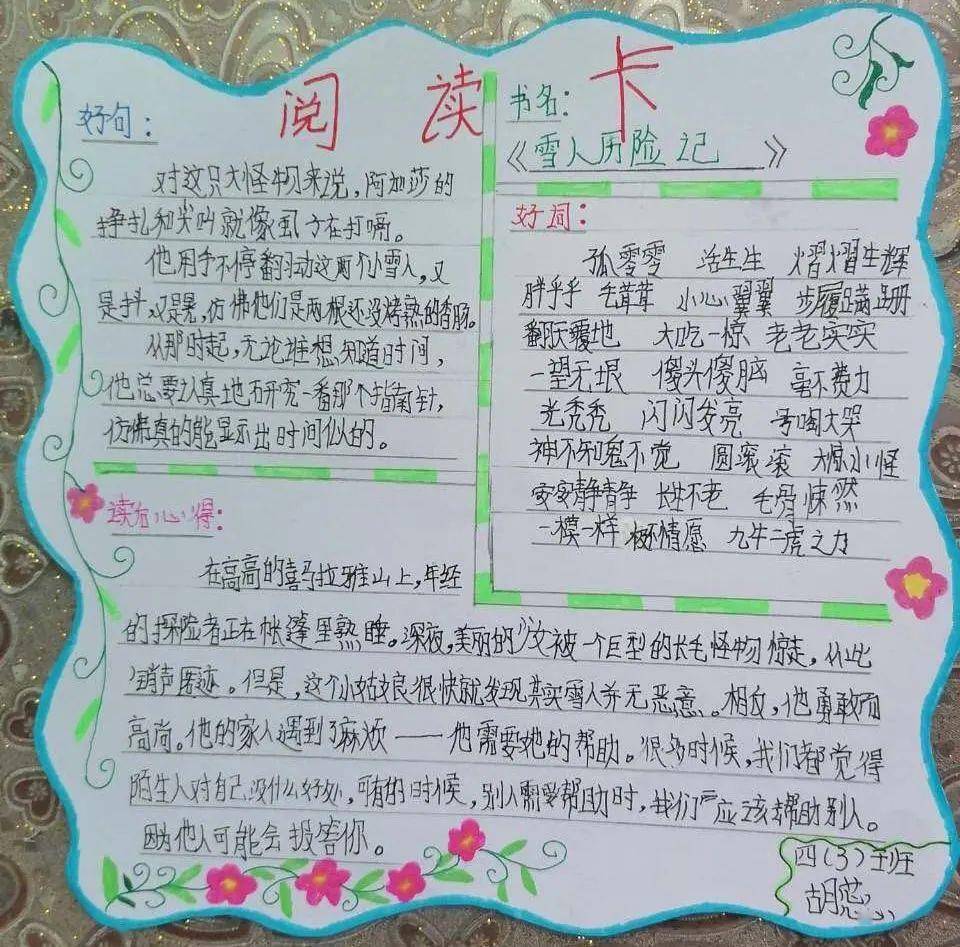 阅读卡
好句：
对这只大怪物来说，阿加莎的
挣扎和尖叫就像虱子在打嗝。
他用手不停翻动这两个小雪人，又
是抖，又是晃，仿佛他们是两根还没烤熟的香肠。
从那时起，无论谁想知道时间，
他总要认真地研究一番那个指南针，
仿佛真的能显示出时间似的。
书名：
《雪人历险记》
好词：
孤零零 活生生 熠熠生辉
胖乎乎 毛茸茸 小心翼翼 步履蹒跚
翻天覆地 大吃一惊 老老实实
一望无垠 傻头傻脑 毫不费力
光秃秃 闪闪发亮 号啕大哭
神不知鬼不觉 圆滚滚 大惊小怪
安安静静 长生不老 毛骨悚然
一模一样 情愿 九牛二虎之力
读后心得：
在高高的喜马拉雅山上，年轻
的探险者正在帐篷里熟睡。深夜，美丽的少女被一个巨型的长毛怪物惊走，从此
消声匿迹。但是，这个小姑娘很快就发现其实雪人并无恶意。相反，他勇敢而
高尚。他的家人遇到了麻烦——他需要她的帮助。很多时候，我们都觉得
陌生人对自己没什么好处，可有的时候，别人需要帮助时，我们应该帮助别人。
因为他人可能会报答你。
四（3）班
胡蕊